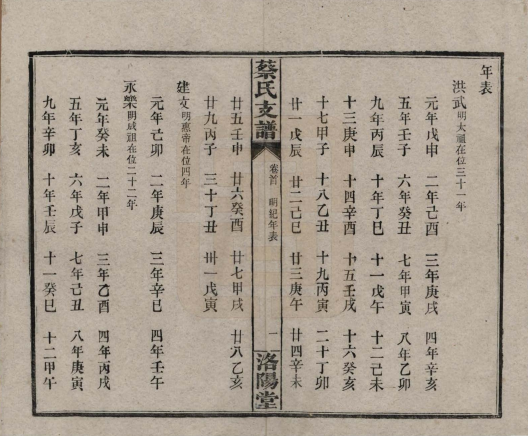 年表
洪武明太祖在位三十一年
元年戊申 二年己酉 三年庚戌 四年辛亥
五年壬子 六年癸丑 七年甲寅 八年乙卯
九年丙辰 十年丁巳 十一戊午 十二己未
十三庚申 十四辛酉 十五壬戌 十六癸亥
十七甲子 十八乙丑 十九丙寅 二十丁卯
廿一戊辰 廿二己巳 廿三庚午 廿四辛未
蔡氏支譜 卷首 明紀年表 一 洛陽堂
廿五壬申 廿六癸酉 廿七甲戌 廿八乙亥
廿九丙子 三十丁丑 卅一戊寅
建文明惠帝在位四年
元年己卯 二年庚辰 三年辛巳 四年壬午
永樂明成祖在位二十二年
元年癸未 二年甲申 三年乙酉 四年丙戌
五年丁亥 六年戊子 七年己丑 八年庚寅
九年辛卯 十年壬辰 十一癸巳 十二甲午